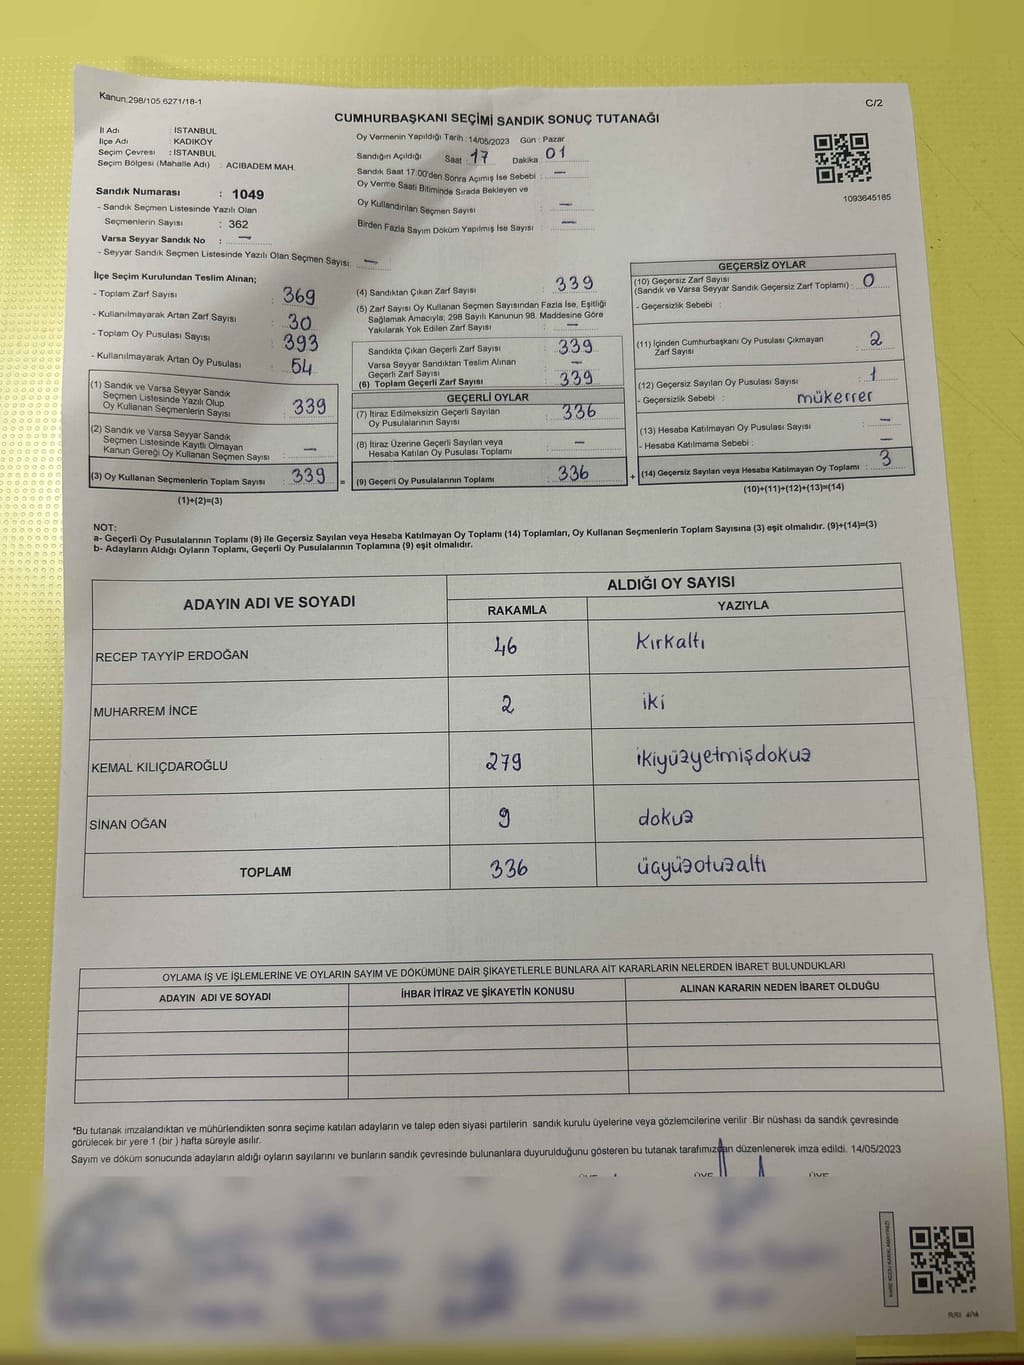 Kanun:298/105 6271/18-1
C/2
CUMHURBAŞKANI SEÇİMİ SANDIK SONUÇ TUTANAĞI
İl Adı : İSTANBUL
İlçe Adı : KADIKÖY
Seçim Çevresi : İSTANBUL
Seçim Bölgesi (Mahalle Adı) : ACIBADEM MAH.
Sandık Numarası : 1049
- Sandık Seçmen Listesinde Yazılı Olan
Seçmenlerin Sayısı : 362
Varsa Seyyar Sandık No : —
- Seyyar Sandık Seçmen Listesinde Yazılı Olan Seçmen Sayısı: —
Oy Vermenin Yapıldığı Tarih : 14/05/2023 Gün : Pazar
Sandığın Açıldığı Saat : 17 Dakika : 01
Sandık Saat 17:00'den Sonra Açımış İse Sebebi : —
Oy Verme Saati Bitiminde Sırada Bekleyen ve
Oy Kullandırılan Seçmen Sayısı : —
Birden Fazla Sayım Döküm Yapılmış İse Sayısı : —
1093645185
İlçe Seçim Kurulundan Teslim Alınan;
- Toplam Zarf Sayısı : 369
- Kullanılmayarak Artan Zarf Sayısı : 30
- Toplam Oy Pusulası Sayısı : 393
- Kullanılmayarak Artan Oy Pusulası : 54
(1) Sandık ve Varsa Seyyar Sandık
Seçmen Listesinde Yazılı Olup
Oy Kullanan Seçmenlerin Sayısı : 339
(2) Sandık ve Varsa Seyyar Sandık
Seçmen Listesinde Kayıtlı Olmayan
Kanun Gereği Oy Kullanan Seçmen Sayısı : —
(3) Oy Kullanan Seçmenlerin Toplam Sayısı : 339 =
(1)+(2)=(3)
(4) Sandıktan Çıkan Zarf Sayısı : 339
(5) Zarf Sayısı Oy Kullanan Seçmen Sayısından Fazla İse, Eşitliği
Sağlamak Amacıyla; 298 Sayılı Kanunun 98. Maddesine Göre
Yakılarak Yok Edilen Zarf Sayısı : —
Sandıkta Çıkan Geçerli Zarf Sayısı : 339
Varsa Seyyar Sandıktan Teslim Alınan
Geçerli Zarf Sayısı : —
(6) Toplam Geçerli Zarf Sayısı : 339
GEÇERLİ OYLAR
(7) İtiraz Edilmeksizin Geçerli Sayılan
Oy Pusulalarının Sayısı : 336
(8) İtiraz Üzerine Geçerli Sayılan veya
Hesaba Katılan Oy Pusulası Toplamı : —
(9) Geçerli Oy Pusulalarının Toplamı : 336 +
GEÇERSİZ OYLAR
(10) Geçersiz Zarf Sayısı
(Sandık ve Varsa Seyyar Sandık Geçersiz Zarf Toplamı) : 0
- Geçersizlik Sebebi :
(11) İçinden Cumhurbaşkanı Oy Pusulası Çıkmayan
Zarf Sayısı : 2
(12) Geçersiz Sayılan Oy Pusulası Sayısı : 1
- Geçersizlik Sebebi : mükerrer
(13) Hesaba Katılmayan Oy Pusulası Sayısı : —
- Hesaba Katılmama Sebebi : —
(14) Geçersiz Sayılan veya Hesaba Katılmayan Oy Toplamı : 3
(10)+(11)+(12)+(13)=(14)
NOT:
a- Geçerli Oy Pusulalarının Toplamı (9) ile Geçersiz Sayılan veya Hesaba Katılmayan Oy Toplamı (14) Toplamları, Oy Kullanan Seçmenlerin Toplam Sayısına (3) eşit olmalıdır. (9)+(14)=(3)
b- Adayların Aldığı Oyların Toplamı, Geçerli Oy Pusulalarının Toplamına (9) eşit olmalıdır.
ADAYIN ADI VE SOYADI
ALDIĞI OY SAYISI
RAKAMLA YAZIYLA
RECEP TAYYİP ERDOĞAN 46 kırkaltı
MUHARREM İNCE 2 iki
KEMAL KILIÇDAROĞLU 279 ikiyüzyetmişdokuz
SİNAN OĞAN 9 dokuz
TOPLAM 336 üçyüzotuzaltı
OYLAMA İŞ VE İŞLEMLERİNE VE OYLARIN SAYIM VE DÖKÜMÜNE DAİR ŞİKAYETLERLE BUNLARA AİT KARARLARIN NELERDEN İBARET BULUNDUKLARI
ADAYIN ADI VE SOYADI İHBAR İTİRAZ VE ŞİKAYETİN KONUSU ALINAN KARARIN NEDEN İBARET OLDUĞU
*Bu tutanak imzalandıktan ve mühürlendikten sonra seçime katılan adayların ve talep eden siyasi partilerin sandık kurulu üyelerine veya gözlemcilerine verilir .Bir nüshası da sandık çevresinde
görülecek bir yere 1 (bir ) hafta süreyle asılır.
Sayım ve döküm sonucunda adayların aldığı oyların sayılarını ve bunların sandık çevresinde bulunanlara duyurulduğunu gösteren bu tutanak tarafımızdan düzenlenerek imza edildi. 14/05/2023